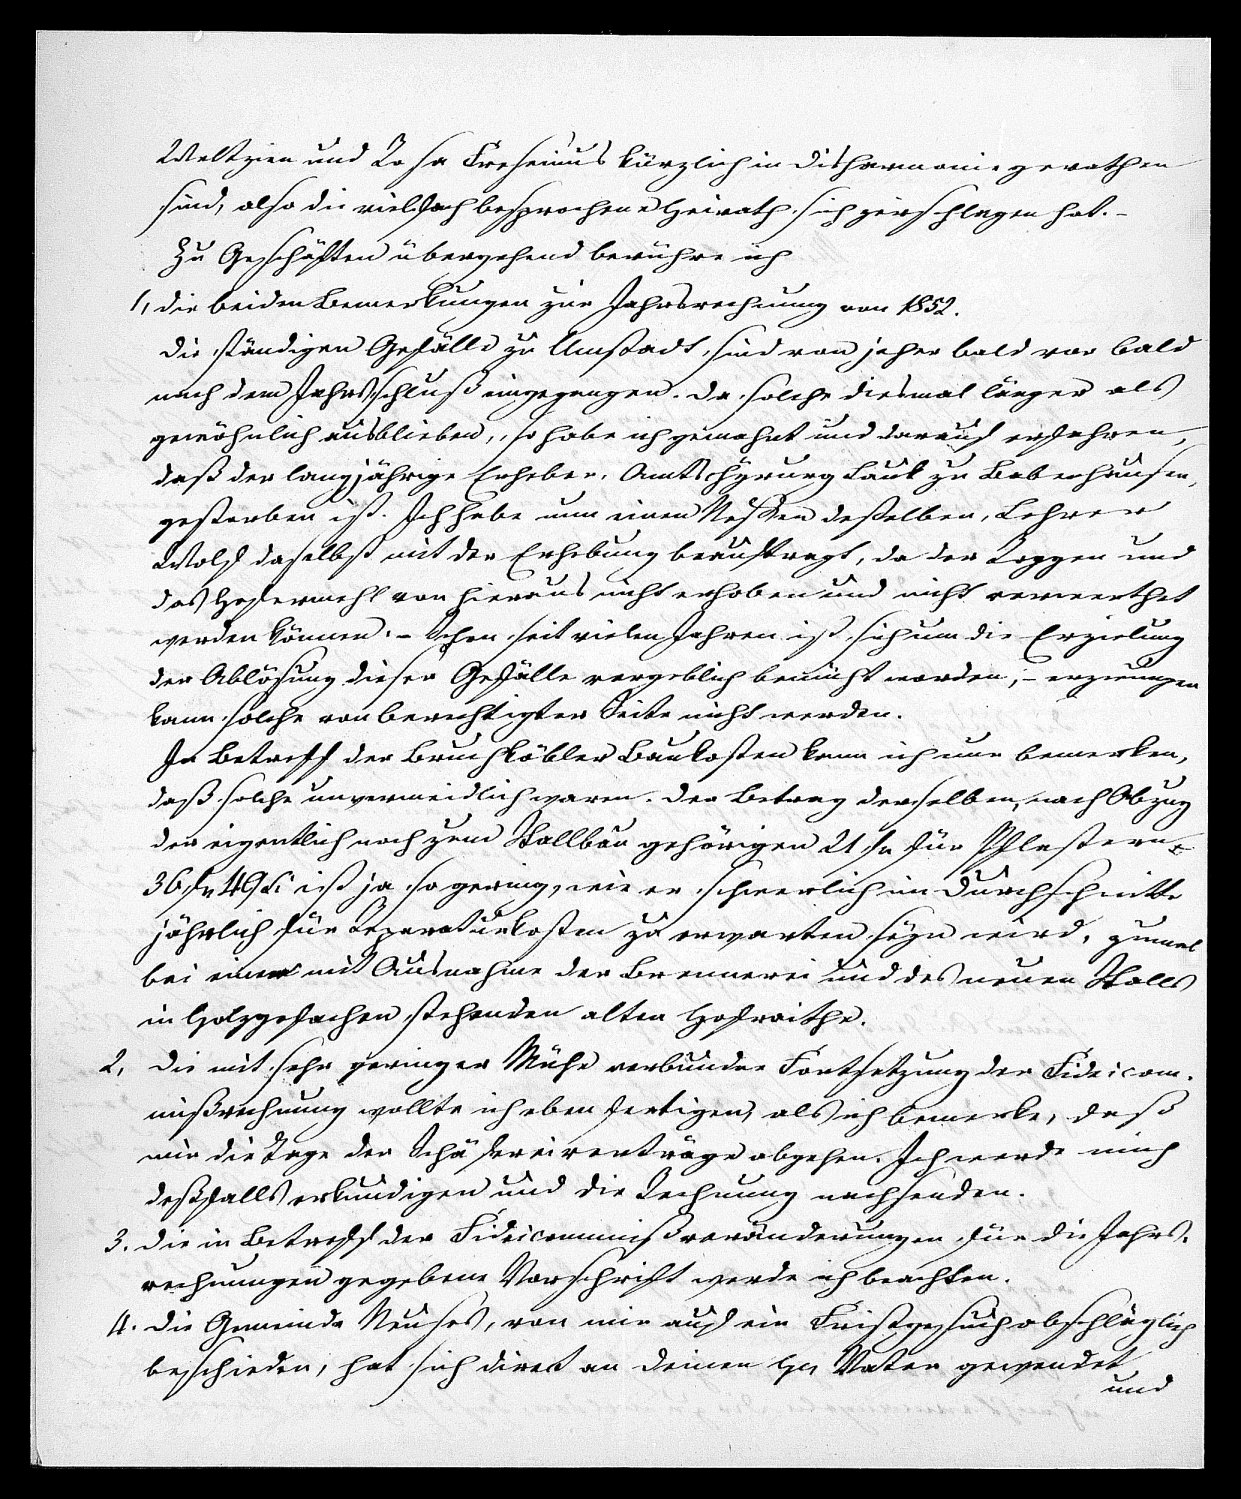 Weltzien und Rosa Fresenius kürzlich in Disharmonie gerathen
sind, also die vielfach besprochene Heirath sich zerschlagen hat. –
Zu Geschäften übergehend berühre ich
1, die beiden Bemerkungen zur Jahrsrechnung von 1852.
Die ständigen Gefälle zu Umstadt, sind von jeher bald vor bald
nach dem Jahrsschluß eingegangen. Da solche diesmal länger als
gewöhnlich ausblieben, so habe ich gemahnt und darauf erfahren,
daß der langjährige Erheber, Amtschyrurg Lauk zu Babenhausen,
gestorben ist. Ich habe nun einen Neffen deßelben, Lehrer
Wolf daselbst mit der Erhebung beauftragt, da der Roggen und
das Hafermehl von hieraus nicht erhoben und nicht verwerthet
werden können. – Schon seit vielen Jahren ist sich um die Erzielung
der Ablösung dieser Gefälle vergeblich bemüht worden, – erzwungen
kann solche von berechtigter Seite nicht werden.
In Betreff der Bruchköbler Baukosten kann ich nur bemerken,
daß solche unvermeidlich waren. Der Betrag derselben, nach Abzug
der eigentlich noch zum Stallbau gehörigen 21 fr für Pflastern
36 fr 49 Kr ist ja so gering, wie er schwerlich im Durchschnitte
jährlich für Reparaturkosten zu erwarten seyn wird, zumal
bei einer mit Ausnahme der Brennerei und des neuen Stalls
in Holzgefachen stehenden alten Hofraithe.
2, Die mit sehr geringer Mühe verbundne Fortsetzung der Fideicom-
mißrechnung wollte ich eben fertigen, als ich bemerke, daß
mir die Tage der Schäfereierträge abgehen. Ich werde mich
deßfalls erkundigen und die Rechnung nachsenden.
3. Die in Betreff der Fideicommißveränderungen für die Jahrs-
rechnungen gegebene Vorschrift werde ich beachten.
4. Die Gemeinde Neuses, von mir auf ein Fristgesuch abschläglich
beschieden, hat sich direct an Deinen Hn Vater gewendet
und